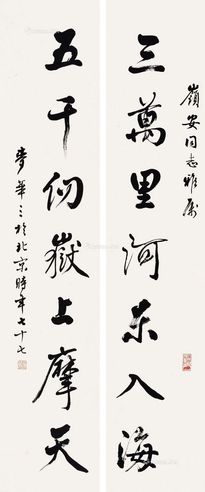 嶺安同志雅屬
三萬里河东入海
五千仞嶽上摩天
麥華三於北京時年七十七